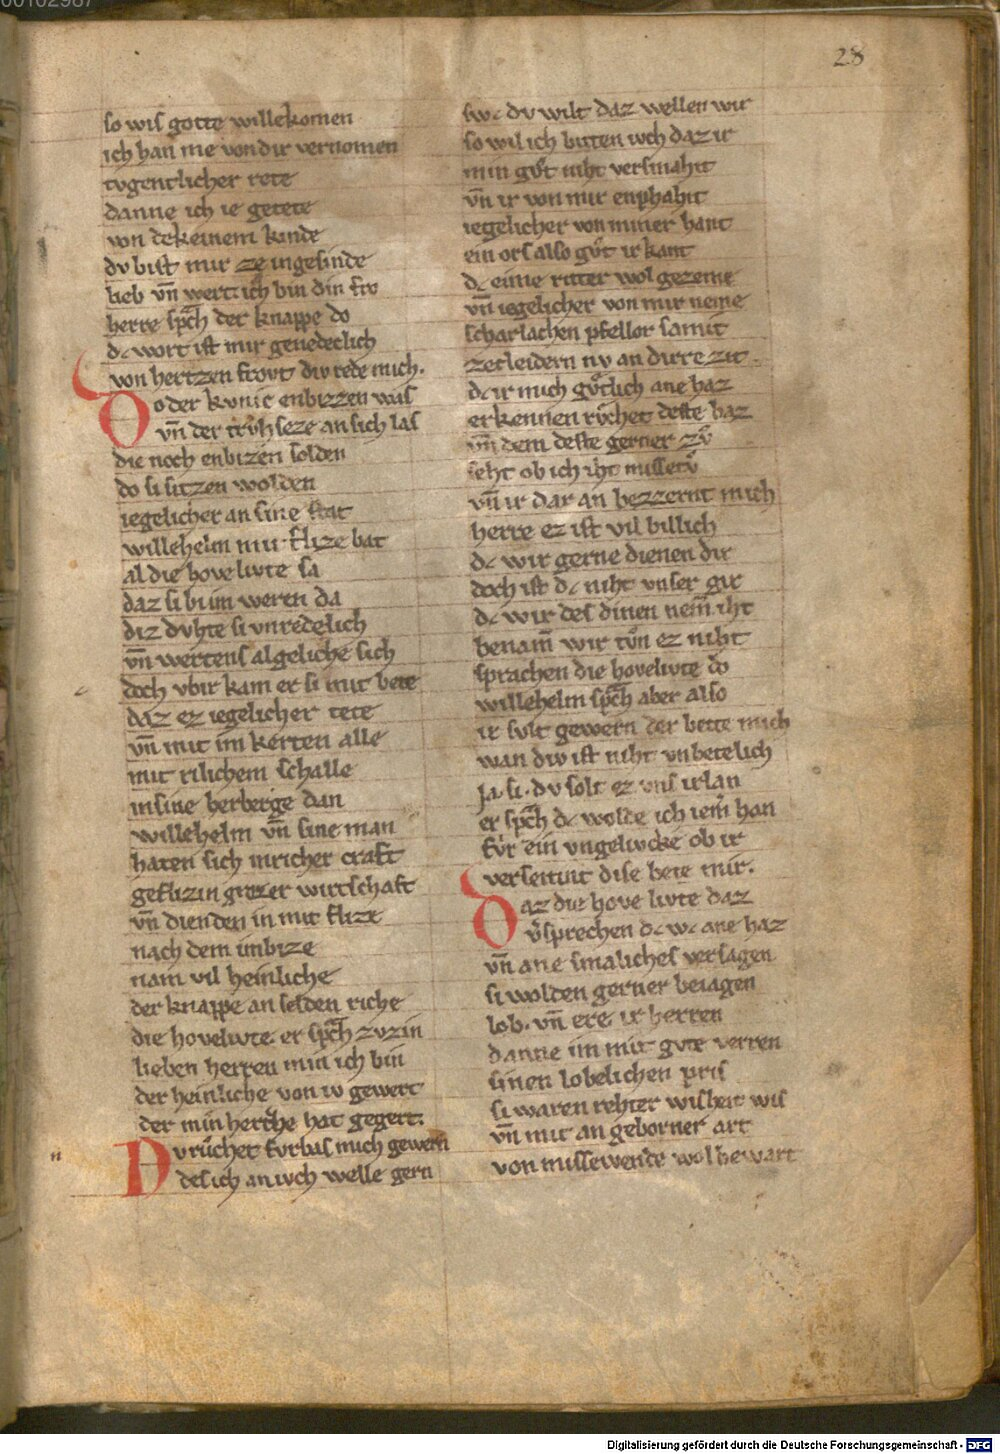 28
so wis gotte willekomen
ich han nie von dir vernomen
tvgentlicher rete
danne ich ie getete
von dekeinem kinde
dv bist mir ze ingesinde
lieb vn̄ wert ich bin din fro
herre sp̄ch der knappe do
dc wort ist mir genedeclich
von hertzen frovt div rede mich.
Do der kvnic enbizzen was
vn̄ der trvͦhseze an sich las
die noch enbizen solden
do si sitzen wolden
iegelicher an sine stat
willehelm mit flize bat
al die hove livte sa
daz si bi im weren da
diz dvhte si vnredelich
vn̄ wertens algeliche sich
doch vbir kam er si mit bete
daz ez iegelicher tete
vn̄ mit im kerten alle
mit rilichem schalle
in sine herberge dan
willehelm vn̄ sine man
haten sich in richer craft
geflizin grozer wirtschaft
vn̄ dienden in mit flize
nach dem imbize
nam vil heinliche
der knappe an selden riche
die hovelivte. er sp̄ch zvzin
lieben herren min ich bin
der heinliche von iv gewert
der min hertze hat gegert.
Dv rvͦchet fvrbas mich gewern
des ich an ivch welle gern
swc dv wilt daz wellen wir
so wil ich bitten ivch daz ir
min gvͦt niht versmahit
vn̄ ir von mir enphahit
iegelicher von miner hant
ein ors also gvͦt ir kant
dc eime ritter wol gezeme
vn̄ iegelicher von mir neme
scharlachen pfellor samit
zecleidern nv an dirre zit
dc ir mich gvͦtlich ane haz
erkennen rvͦchet deste baz
vn̄ dem deste gerner zvͦ
seht ob ich iht missetvͦ
vn̄ ir dar an bezzernt mich
herre ez ist vil billich
dc wir gerne dienen dir
doch ist dc niht vnser gir
dc wir des dinen nem̄ iht
benam̄ wir tvͦn ez niht
sprachen die hovelivte do
willehelm sp̄ch aber also
ir svlt gewern der bette mich
wan div ist niht vnbetelich
Ja. si. dv solt ez vns irlan
er sp̄ch dc wolde ich iem̄ han
fvr ein vngelivcke ob ir
versetint dise bete mir.
Daz die hove livte daz
v̄sprechen dc wc ane haz
vn̄ ane smaliches versagen
si wolden gerner beiagen
lob. vn̄ ere ir herren
danne im mit gvte verren
sinen lobelichen pris
si waren rehter wisheit wis
vn̄ mit an geborner art
von missewende wol bewart
n
Digitalisierung gefördert durch die Deutsche Forschungsgemeinschaft - DFG